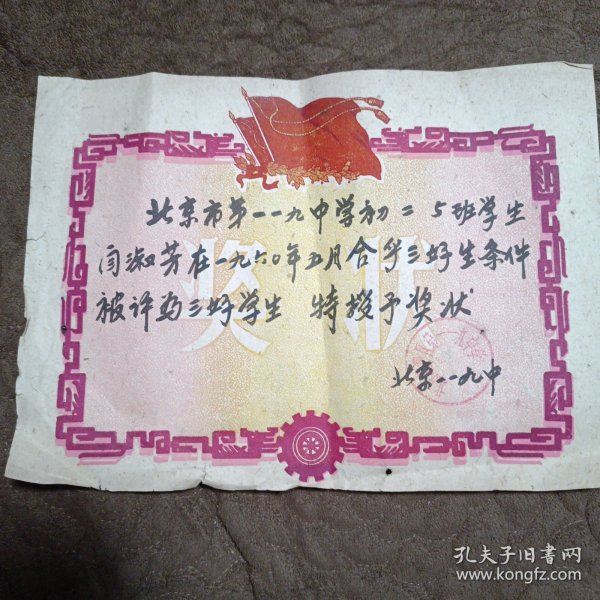 奖状
北京市第一一九中学初二5班学生
闫淑芳在一九六〇年五月合乎三好生条件
被评为三好学生 特授予奖状
北京一一九中
孔夫子旧书网
www.kongfz.com